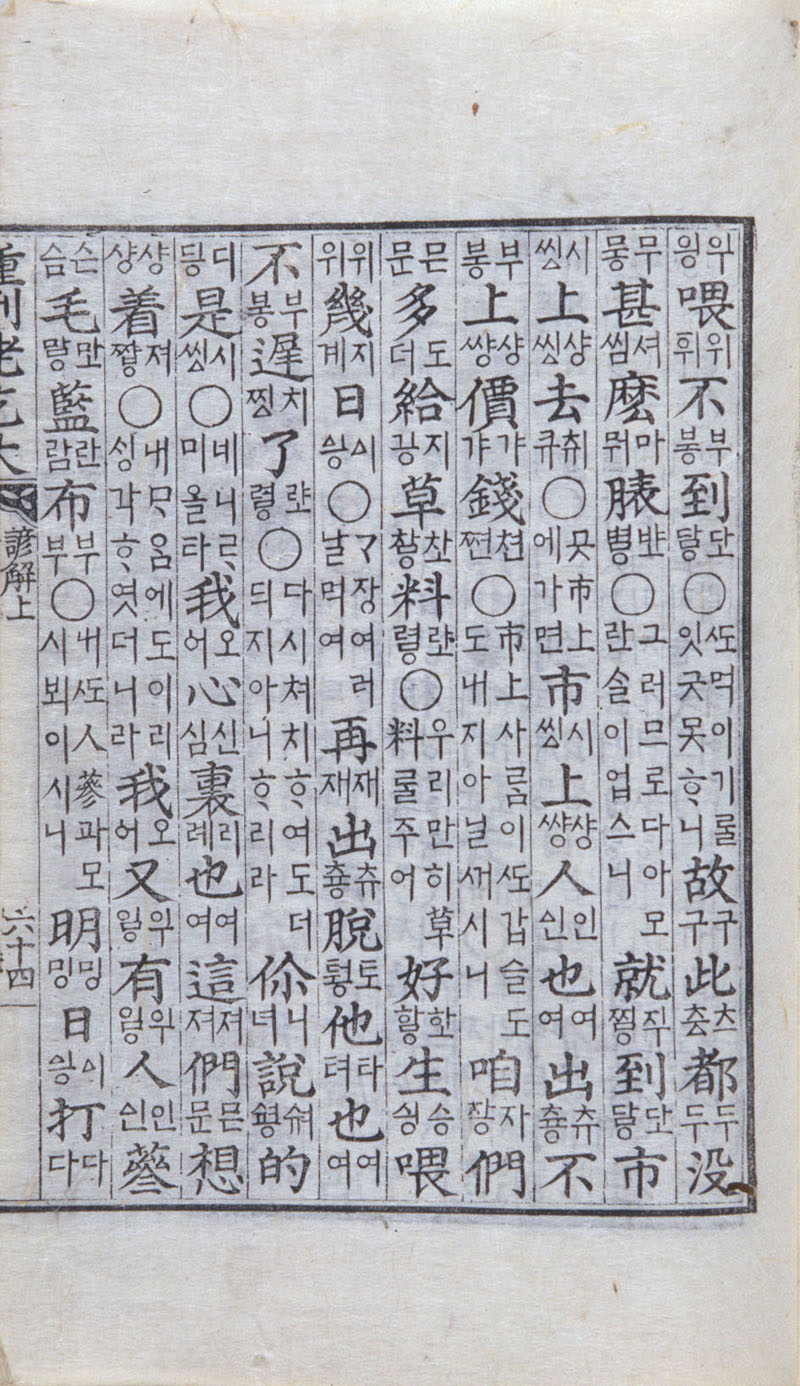 우윙喂위휘不부붕到닾닿○ᄯᅩ먹이기ᄅᆞᆯ잇긋못ᄒᆞ니故구구此츠충都두두没
무뭉甚셔씸麽마뭐臕뱌ᇢ병○그러므로다아모란ᄉᆞᆯ이업스니就직찡到닾닿市
시씽上샹썅去취큐○곳市上에가면市시씽上샹썅人인ᅀᅵᆫ也여여出츄츙不
부붕上샹썅價갸갸錢쳔쪈○市上사ᄅᆞᆷ이ᄯᅩ갑슬도도내지아닐ᄭᅥ시니咱자장們
믄문多도더給지깅草찬찰料랸령○우리만히草料ᄅᆞᆯ주어好한핳生승싕喂
위위幾지계日이ᅀᅵᇰ○ᄀᆞ장여러날먹여再재재出츄츙脫토퉝他타터也여여
不부붕遲치찡了랸령○다시쳐치ᄒᆞ여도더듸지아니ᄒᆞ리라你니녀說쉬ᇢ숑的
디딩是시씽○네니ᄅᆞ미올타我오어心신심裏리례也여여這져져們믄문想
샹샹着져쨩○내ᄆᆞᄋᆞᆷ에도이리싱각ᄒᆞ엿더니라我오어又우잏有우잏人인ᅀᅵᆫ蔘
슨슴毛만랗藍란람布부부○내ᄯᅩ人蔘과모시뵈이시니明밍밍日이ᅀᅵᇰ打다다
重刊老乞大
諺解上
六十四